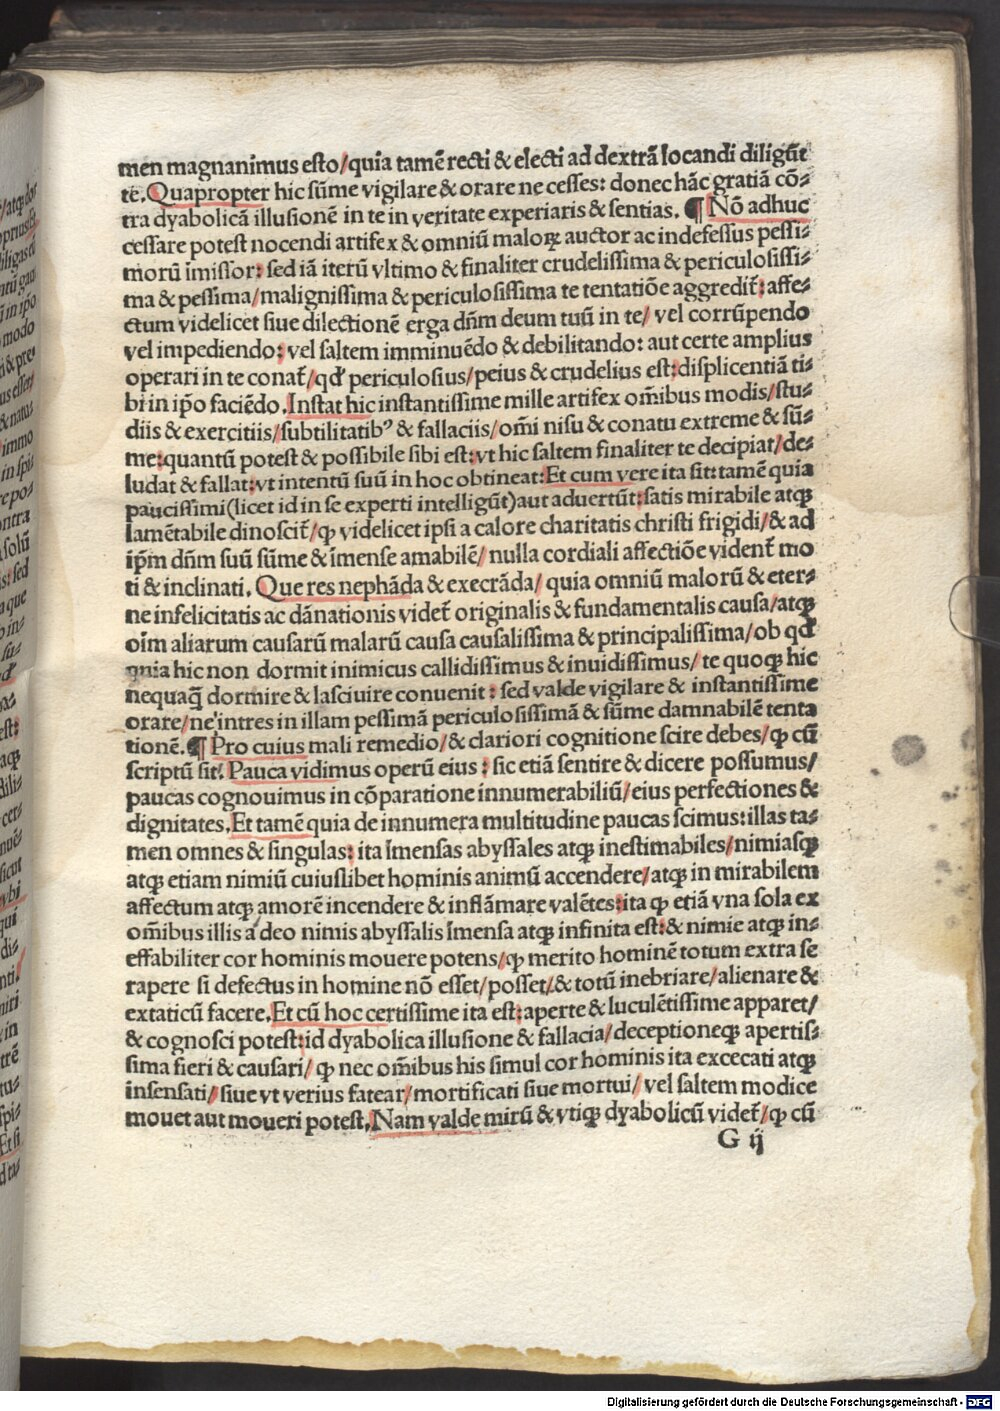 men magnanimus esto/quia tamē recti & electi ad dextrā locandi diligūt
te. Quapropter hic sūme vigilare & orare ne cesses: donec hāc gratiā cō⸗
tra dyabolicā illusionē in te in veritate experiaris & sentias. ¶ Nō adhuc
cessare potest nocendi artifex & omniū maloꝝ auctor ac indefessus pessi⸗
morū īmissor: sed iā iterū vltimo & finaliter crudelissima & periculosissi⸗
ma & pessima/malignissima & periculosissima te tentatiōe aggredit̄: affe⸗
ctum videlicet siue dilectionē erga dn̄m deum tuū in te/ vel corrūpendo
vel impediendo: vel saltem imminuēdo & debilitando: aut certe amplius
operari in te conat̄/qd̓ periculosius/peius & crudelius est: displicentiā ti⸗
bi in ip̄o faciēdo. Instat hic instantissime mille artifex om̄ibus modis/stu⸗
diis & exercitiis/subtilitatibꝰ & fallaciis/om̄i nisu & conatu extreme & sū⸗
me: quantū potest & possibile sibi est: vt hic saltem finaliter te decipiat/de⸗
ludat & fallat: vt intentū suū in hoc obtineat: Et cum vere ita sit: tamē quia
paucissimi (licet id in se experti intelligūt) aut aduertūt: satis mirabile atqꝫ
lamētabile dinoscit̄/ꝙ videlicet ipsi a calore charitatis christi frigidi/& ad
ip̄m dn̄m suū sūme & īmense amabilē/ nulla cordiali affectiōe vident̄ mo
ti & inclinati. Que res nephāda & execrāda/ quia omniū malorū & eter⸗
ne infelicitatis ac dānationis videt̄ originalis & fundamentalis causa/atqꝫ
oīm aliarum causarū malarū causa causalissima & principalissima/ob qd̓
quia hic non dormit inimicus callidissimus & inuidissimus/ te quoqꝫ hic
nequaq̄ dormire & lasciuire conuenit: sed valde vigilare & instantissime
orare/ne intres in illam pessimā periculosissimā & sūme damnabilē tenta
tionē. ¶ Pro cuius mali remedio/& clariori cognitione scire debes/ꝙ cū
scriptū sit. Pauca vidimus operū eius: sic etiā sentire & dicere possumus/
paucas cognouimus in cōparatione innumerabiliū/eius perfectiones &
dignitates. Et tamē quia de innumera multitudine paucas scimus: illas ta⸗
men omnes & singulas: ita īmensas abyssales atqꝫ inestimabiles/nimiasqꝫ
atqꝫ etiam nimiū cuiuslibet hominis animū accendere/atqꝫ in mirabilem
affectum atqꝫ amorē incendere & inflāmare valētes: ita ꝙ etiā vna sola ex
om̄ibus illis a deo nimis abyssalis īmensa atqꝫ infinita est: & nimie atqꝫ in⸗
effabiliter cor hominis mouere potens/ꝙ merito hominē totum extra se
rapere si defectus in homine nō esset/posset/& totū inebriare/alienare &
extaticū facere. Et cū hoc certissime ita est: aperte & luculētissime apparet/
& cognosci potest: id dyabolica illusione & fallacia/deceptioneqꝫ apertis⸗
sima fieri & causari/ ꝙ nec om̄ibus his simul cor hominis ita excecati atqꝫ
insensati/siue vt verius fatear/mortificati siue mortui/ vel saltem modice
mouet aut moueri potest. Nam valde mirū & vtiqꝫ dyabolicū videt̄/ꝙ cū
G ij
Digitalisierung gefördert durch die Deutsche Forschungsgemeinschaft - DFG